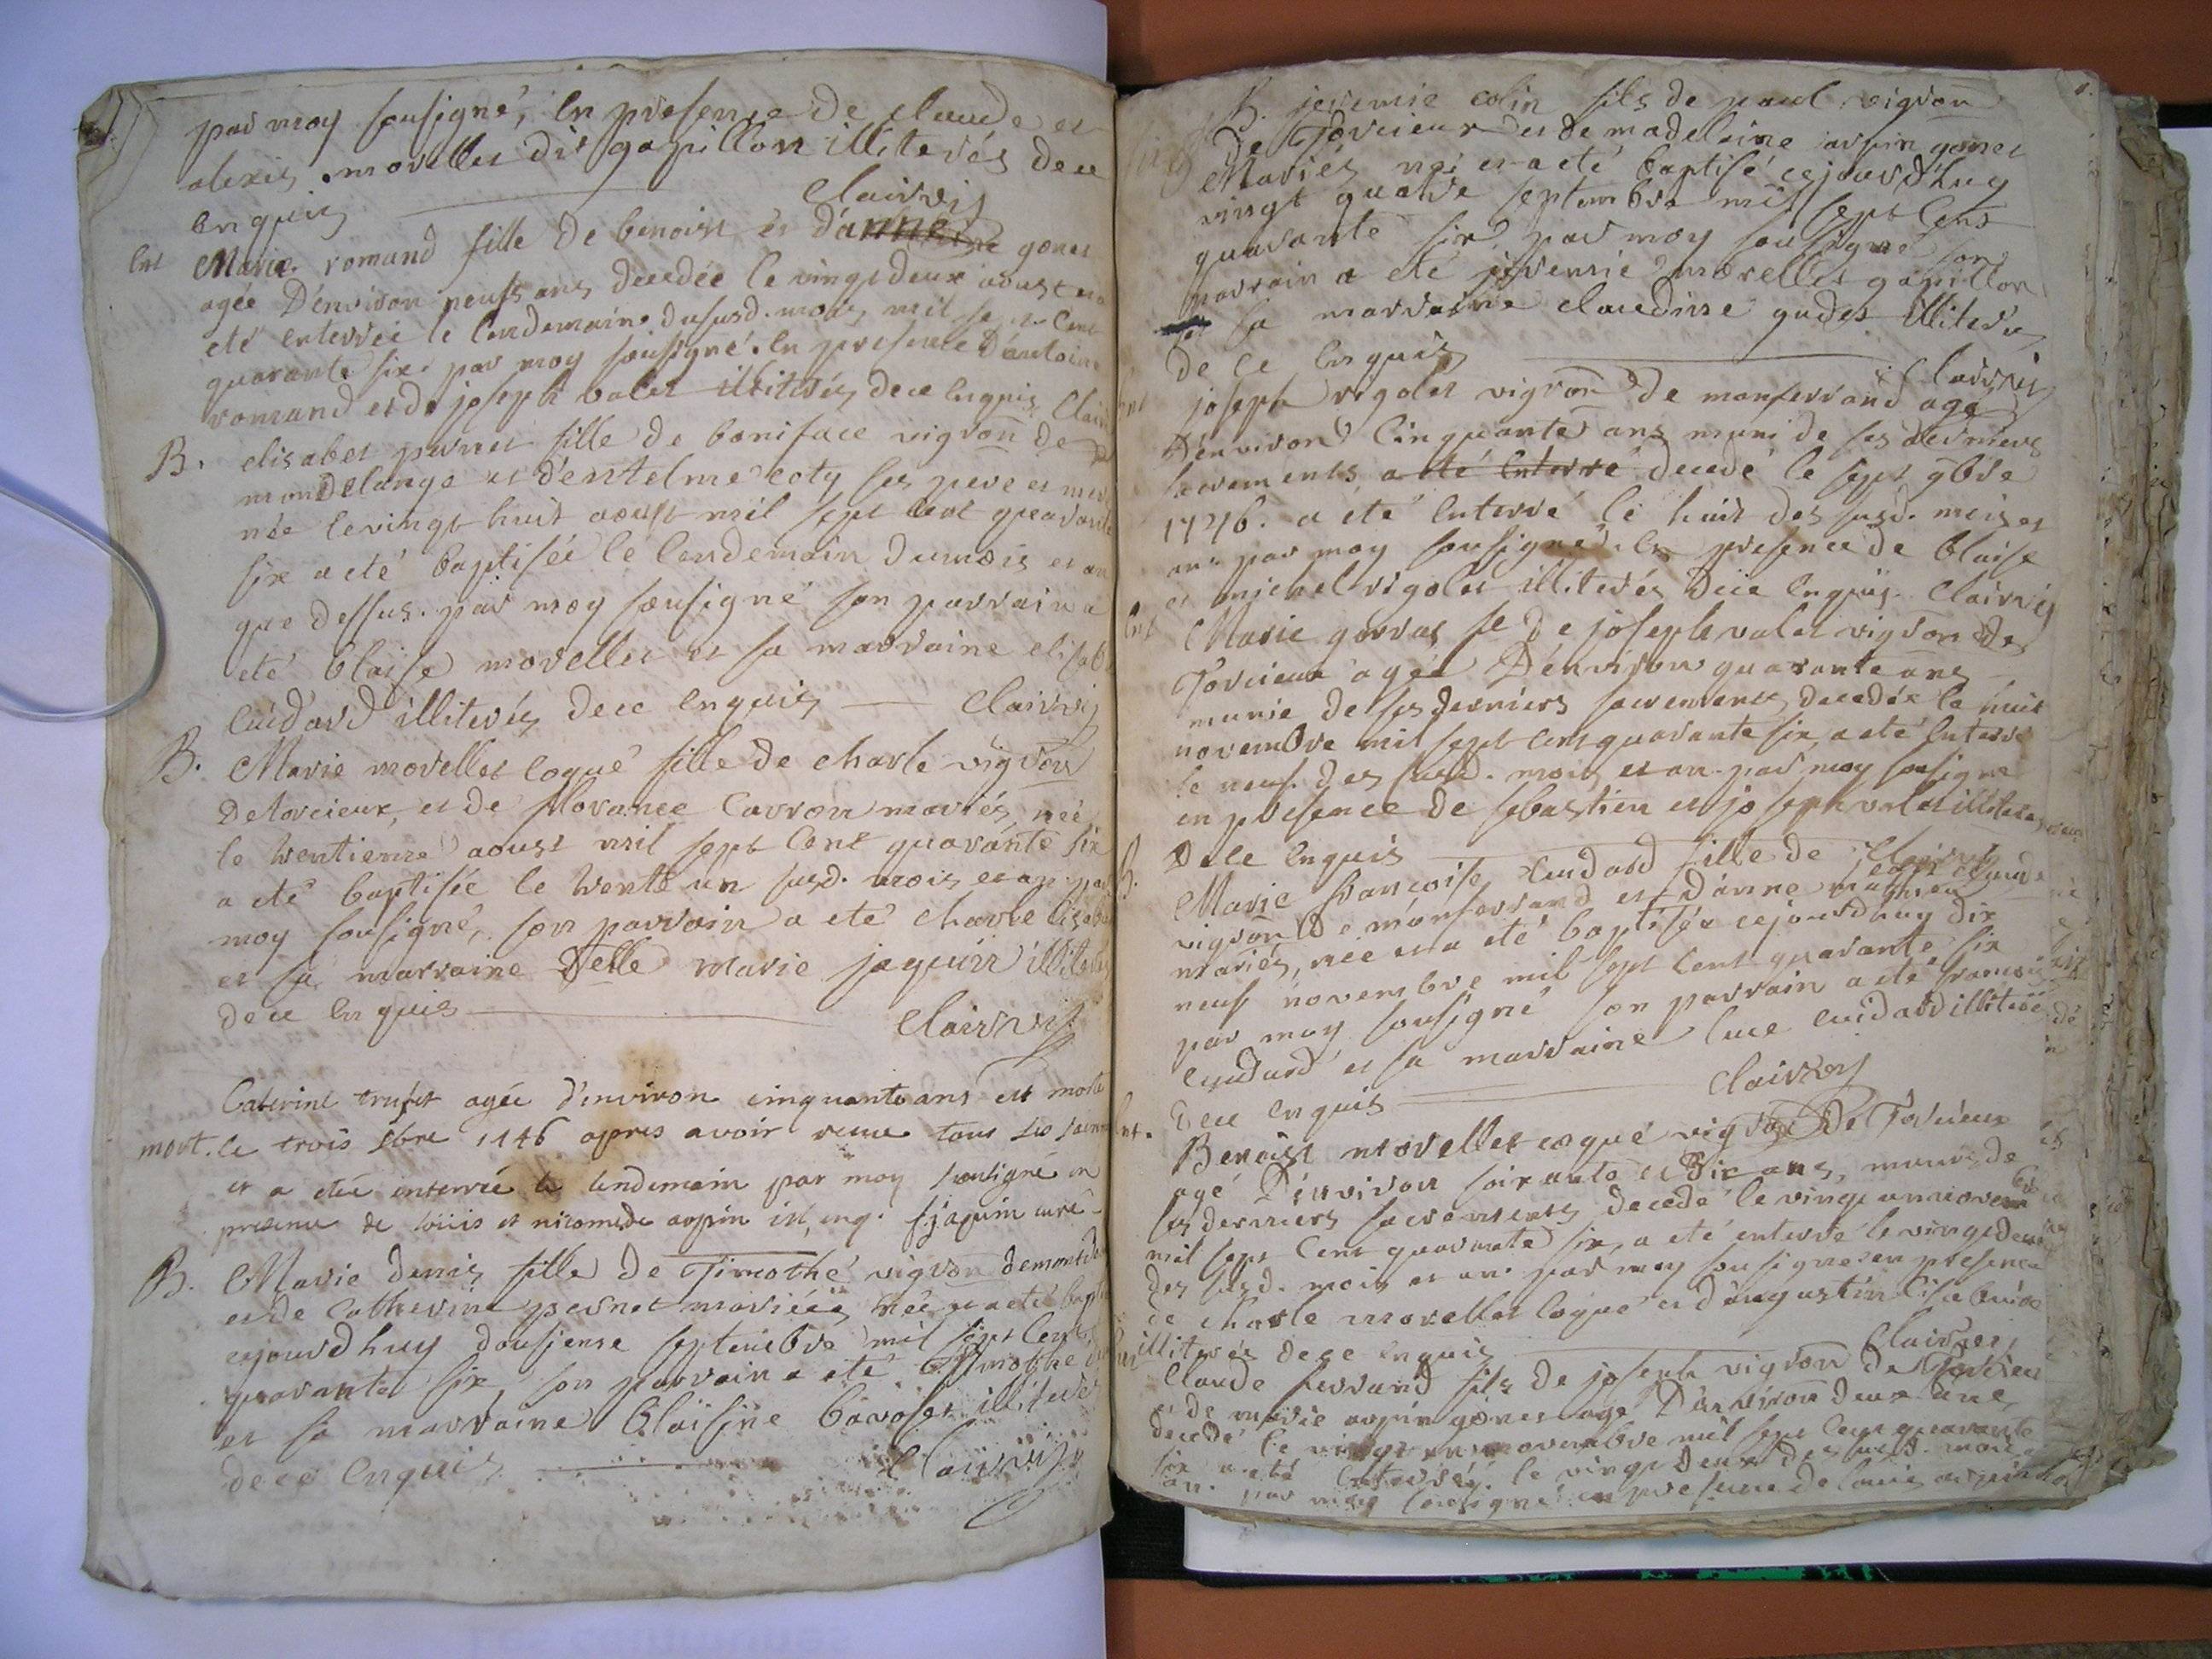 par moy sousigné, en presence de claude et
alexis morellet dit gapillon illiterés de ce
enquis Clairvis
Ent Marie romand fille de benoist et d'anne gonet
agée d'environ neuf ans decedée le vingt deux aoust et a
eté enterrée le lendemain du susd. mois mil sept cent
quarante six par moy sousigné. en presence d'antoine
romand et de joseph valet illiterés de ce enquis Clair
B. elisabet pernet fille de boniface vigron de
mondelange et d'entelme coty ses pere et mere
née le vingt huit aoust mil sept cent quarante
six a eté baptisée le lendemain du mois et an
que dessus. par moy sousigné son parrain a
eté blaise morellet et sa marraine elisab
cuidard illiterés de ce enquis Clairvis
B. Marie morellet coqué fille de charle vigron
de torcieux, et de florance carron mariés, née
le trentieme aoust mil sept cent quarante six
a eté baptisée le trente un susd. mois et an par
moy sousigné, son parrain a eté charle
et sa marraine Delle marie jaquin illiterés
de ce enquis
Clairvis
Caterine trufet agée d'environ cinquante ans est morte
mort. le trois 8bre 1746 apres avoir receu tous ses
et a eteé enterrée le lendemain par moy sousigné en
presence de loüis et nicomede arpin ill. enq. jaquin curé
B. Marie denis fille de Timothé vigron de
et de Catherine pernet mariéés née et a eté bapt
cejourdhuy dousiesme septembre mil sept cent
quarante six, son parrain a eté Timothé
et sa marraine blaisine illiterés
de ce enquis Clairvis
B. jeremie colin fils de paul vigron
de Torcieux et de madelaine arpin gonet
Mariés né et a eté baptisé cejourd'huy
vingt quatre septembre mil sept cent
quarante six, par moy sousigné son
parrain a eté jeremie morellet gapillon
sa marraine claudine gudet illiterés
de ce enquis Clairvis
joseph rigolet vigron de monferrand agé
d'environ cinquante ans muni de ses derniers
sacrements a eté enterré decedé le sept 9bre
1746. a eté enterré le huit des susd. mois et
an. par moy sousigné. en presence de blaise
et michel rigolet illiterés de ce enquis. Clairvis
Ent Marie gorras fe de joseph valet vigron de
Torcieux agée d'environ quarante ans
munie de ses derniers sacrements decedée le huit
novembre mil sept cent quarante six, a eté enterré
le neuf des susd. mois et an. par moy sousigné
en presence de sebastien et joseph valet illiterés
de ce enquis
B. Marie françoise cudard fille de claude
vigron de monferrand et d'anne
mariés, née et a eté baptisée cejourdhuy dix
neuf novembre mil sept cent quarante six
par moy sousigné son parrain a eté françois
cuidard et sa marraine luce cuidard illiterés
de ce enquis Clairvis
Ent. Benoist morellet coqué vigron de Torcieux
agé d'environ soixante et dix ans, muni de
ses derniers sacrements decedé le vingt un novem
mil sept cent quarante six, a eté enterré le vingt deux
des susd. mois et an. par moy sousigné en presence
de charle morellet coqué et d'augustin
illiterés de ce enquis Clairvis
Claude ferrand fils de joseph vigron de Torcieu
et de marie arpin gonet agé d'environ deux ans,
decedé le vingt un novembre mil sept cent quarante
six a eté enterré le vingt deux des susd. mois et
an. par moy sousigné en presence de louis arpin